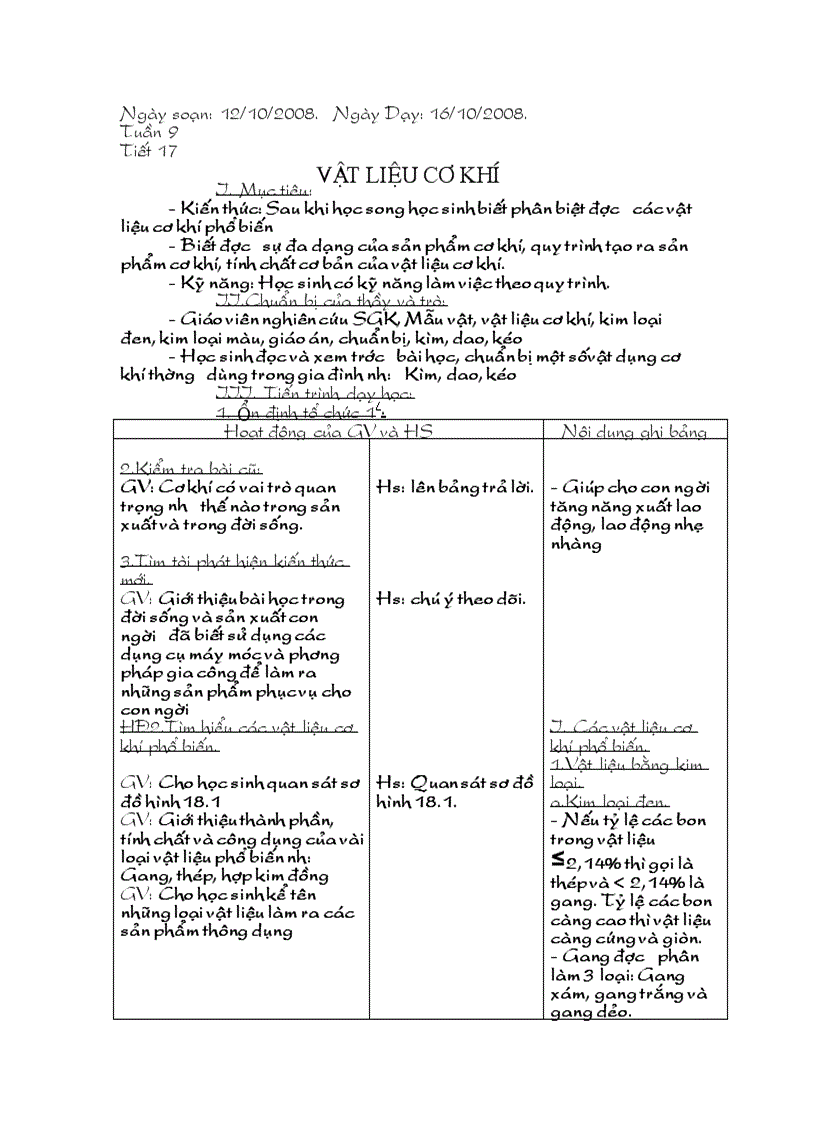 Ngày soạn: 12/10/2008. Ngày Dạy: 16/10/2008.
Tuần 9
Tiết 17
VẬT LIỆU CƠ KHÍ
I. Mục tiêu:
- Kiến thức: Sau khi học song học sinh biết phân biệt đợc các vật
liệu cơ khí phổ biến
- Biết đợc sự đa dạng của sản phẩm cơ khí, quy trình tạo ra sản
phẩm cơ khí, tính chất cơ bản của vật liệu cơ khí.
- Kỹ năng: Học sinh có kỹ năng làm việc theo quy trình.
II.Chuẩn bị của thầy và trò:
- Giáo viên nghiên cứu SGK, Mẫu vật, vật liệu cơ khí, kim loại
đen, kim loại màu, giáo án, chuẩn bị, kìm, dao, kéo
- Học sinh đọc và xem trớc bài học, chuẩn bị một số vật dụng cơ
khí thờng dùng trong gia đình nh: Kìm, dao, kéo
III. Tiến trình dạy học:
1. Ổn định tổ chức 1/:
Hoạt động của GV và HS
Nội dung ghi bảng
2.Kiểm tra bài cũ:
GV: Cơ khí có vai trò quan
trọng nh thế nào trong sản
xuất và trong đời sống.
Hs: lên bảng trả lời.
- Giúp cho con ngời
tăng năng xuất lao
động, lao động nhẹ
nhàng
3.Tìm tòi phát hiện kiến thức
mới.
GV: Giới thiệu bài học trong
đời sống và sản xuất con
ngời đã biết sử dụng các
dụng cụ máy móc và phơng
pháp gia công để làm ra
những sản phẩm phục vụ cho
con ngời
Hs: chú ý theo dõi.
HĐ2.Tìm hiểu các vật liệu cơ
khí phổ biến.
GV: Cho học sinh quan sát sơ
đồ hình 18.1
GV: Giới thiệu thành phần,
tính chất và công dụng của vài
loại vật liệu phổ biến nh:
Gang, thép, hợp kim đồng
GV: Cho học sinh kể tên
những loại vật liệu làm ra các
sản phẩm thông dụng
Hs: Quan sát sơ đồ
hình 18.1.
I. Các vật liệu cơ
khí phổ biến.
1.Vật liệu bằng kim
loại.
a.Kim loại đen.
- Nếu tỷ lệ các bon
trong vật liệu
≤2,14% thì gọi là
thép và < 2,14% là
gang. Tỷ lệ các bon
càng cao thì vật liệu
càng cứng và giòn.
- Gang đợc phân
làm 3 loại: Gang
xám, gang trắng và
gang dẻo.